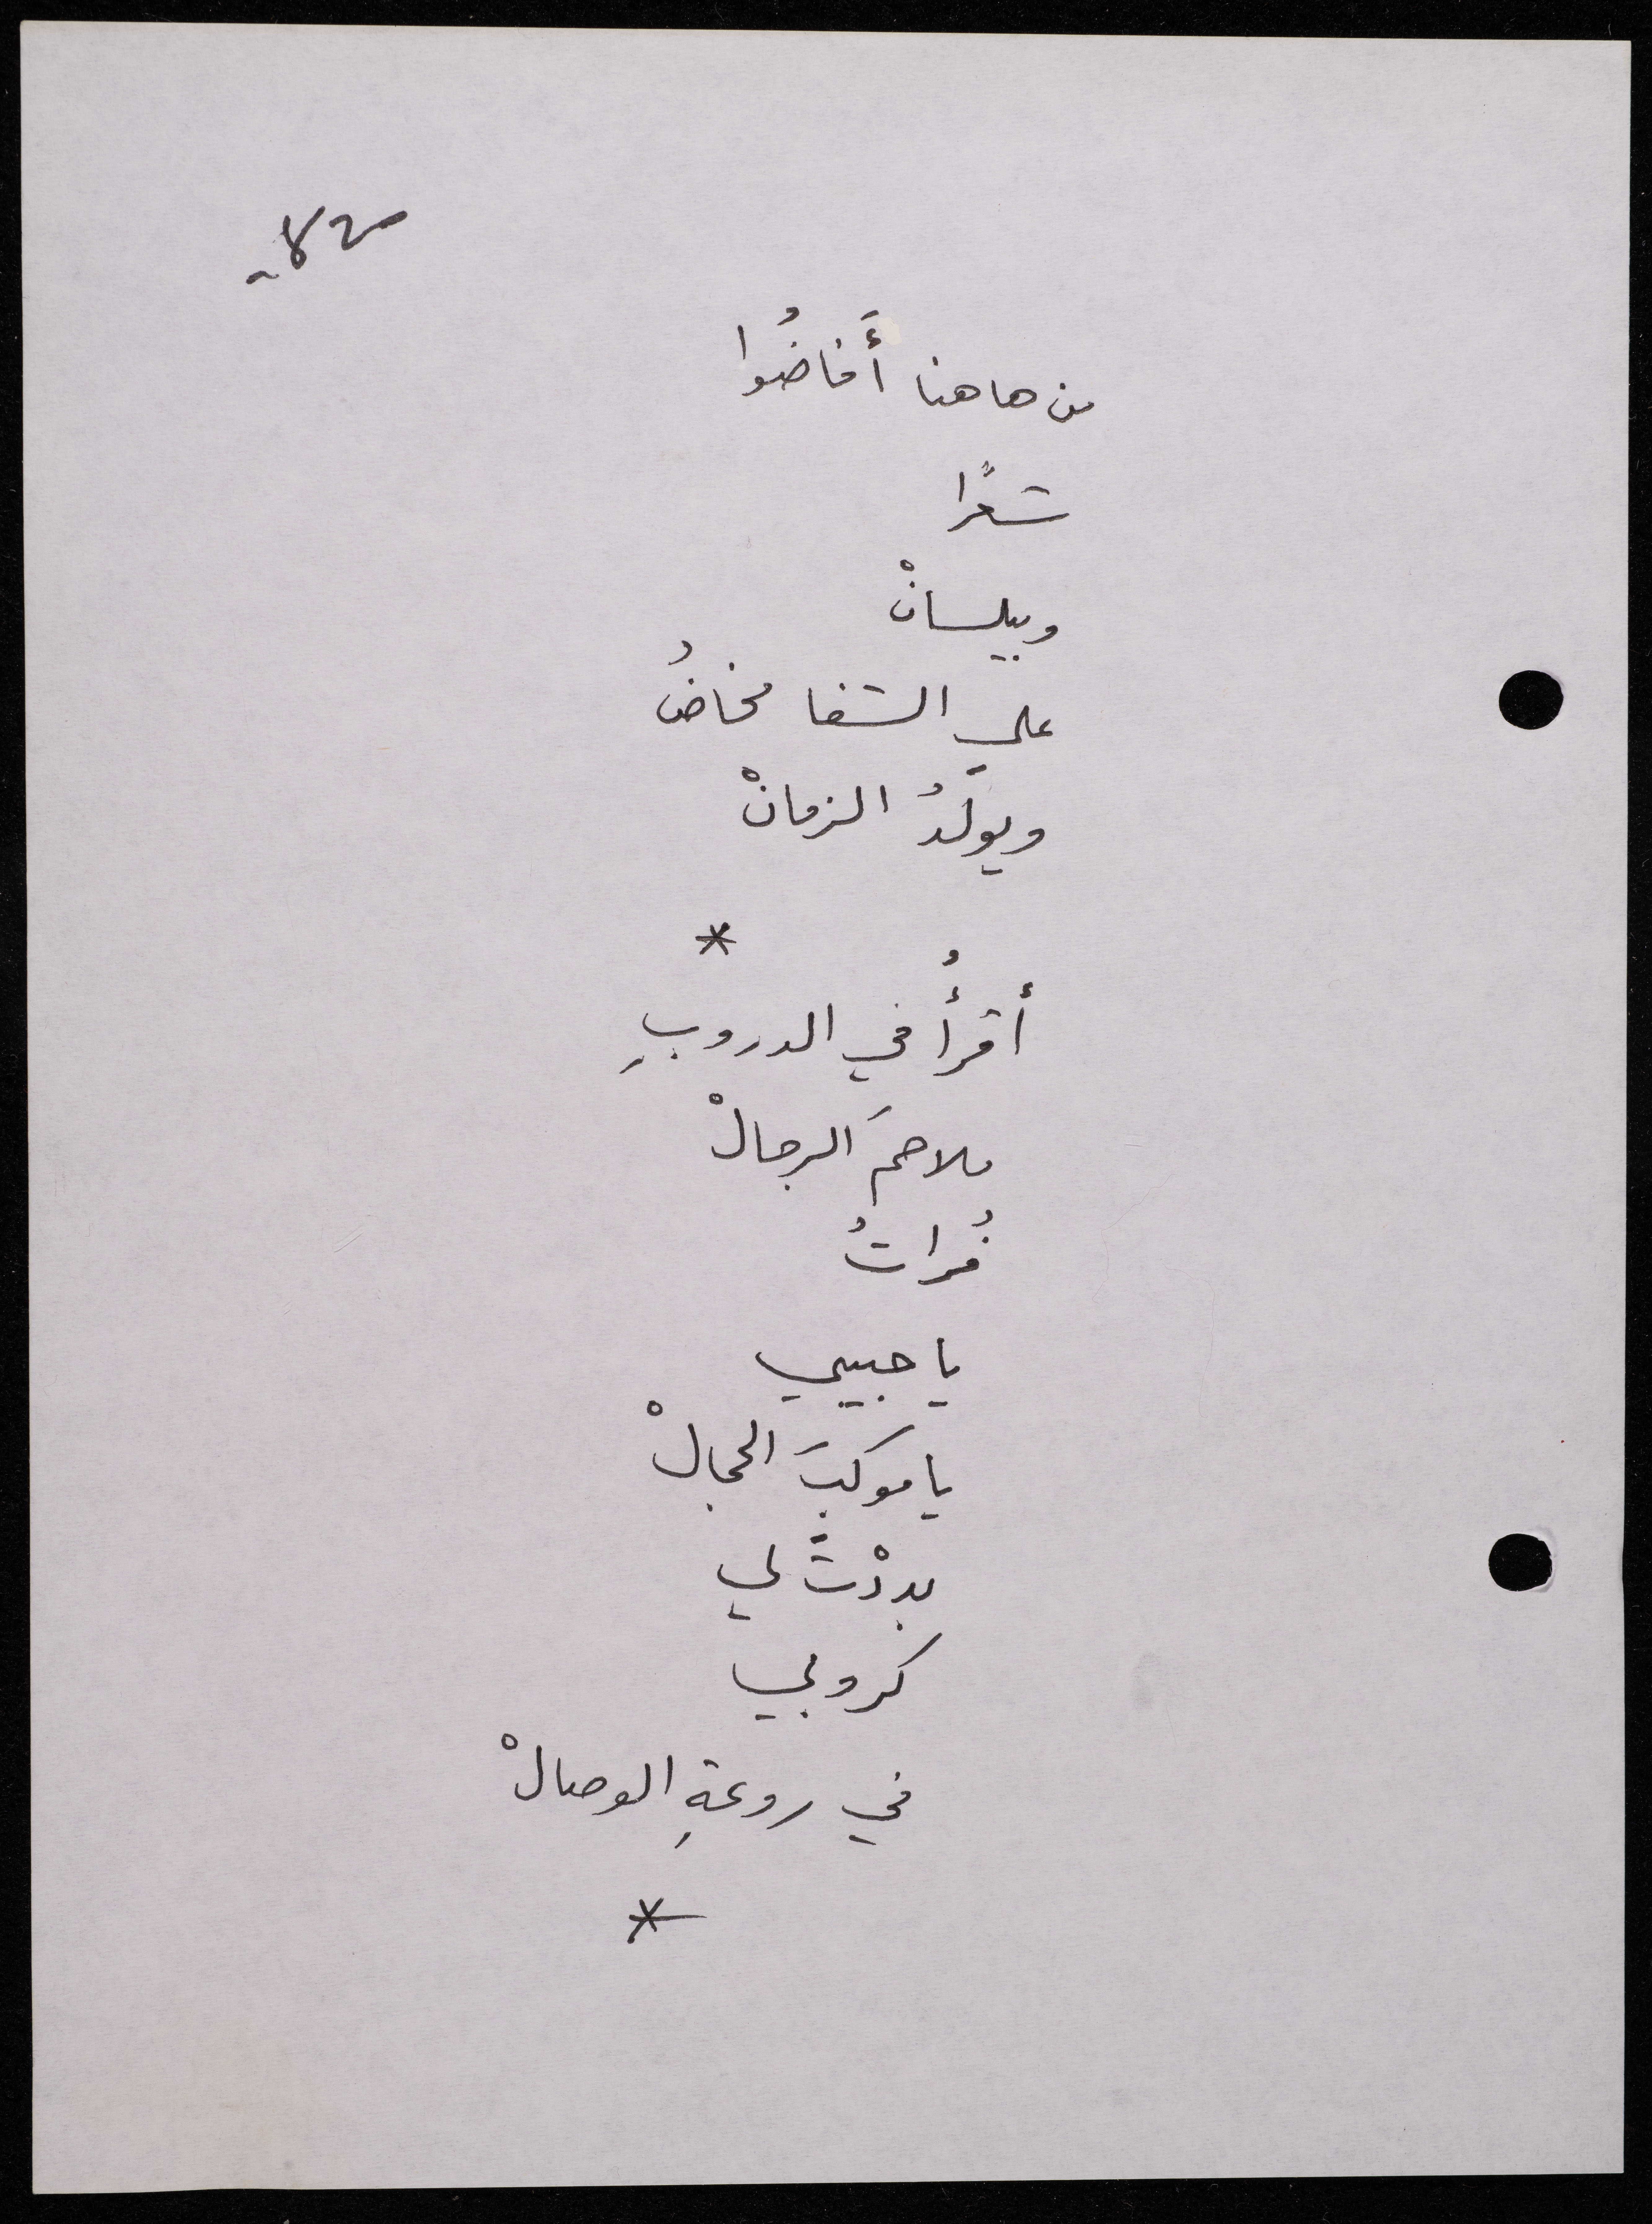 من هاهنا أَفاضُوا
شعْرًا
وبيلسانْ
علي الشفا مخاضُ
ويولَدُ الزمانْ
*
أقرأُ في الدروبِ
ملاحمَ الرجالْ
فُراتُ
يا حبيبي
يا موكبَ الجمالْ
بددْتَ لي
كروبي
في روعةِ الوصالْ
*